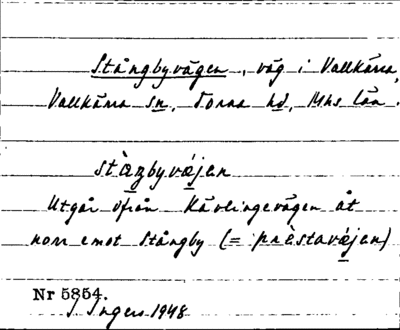 Stångbyvägen, väg i Vallkärra,
Vallkärra sn, Torna hd, Mhs län.
stàngbyvæjen
Utgår från Kävlingevägen åt
norr emot Stångby (= prèstavæjen)
Nr 5854.
I. Ingers 1948